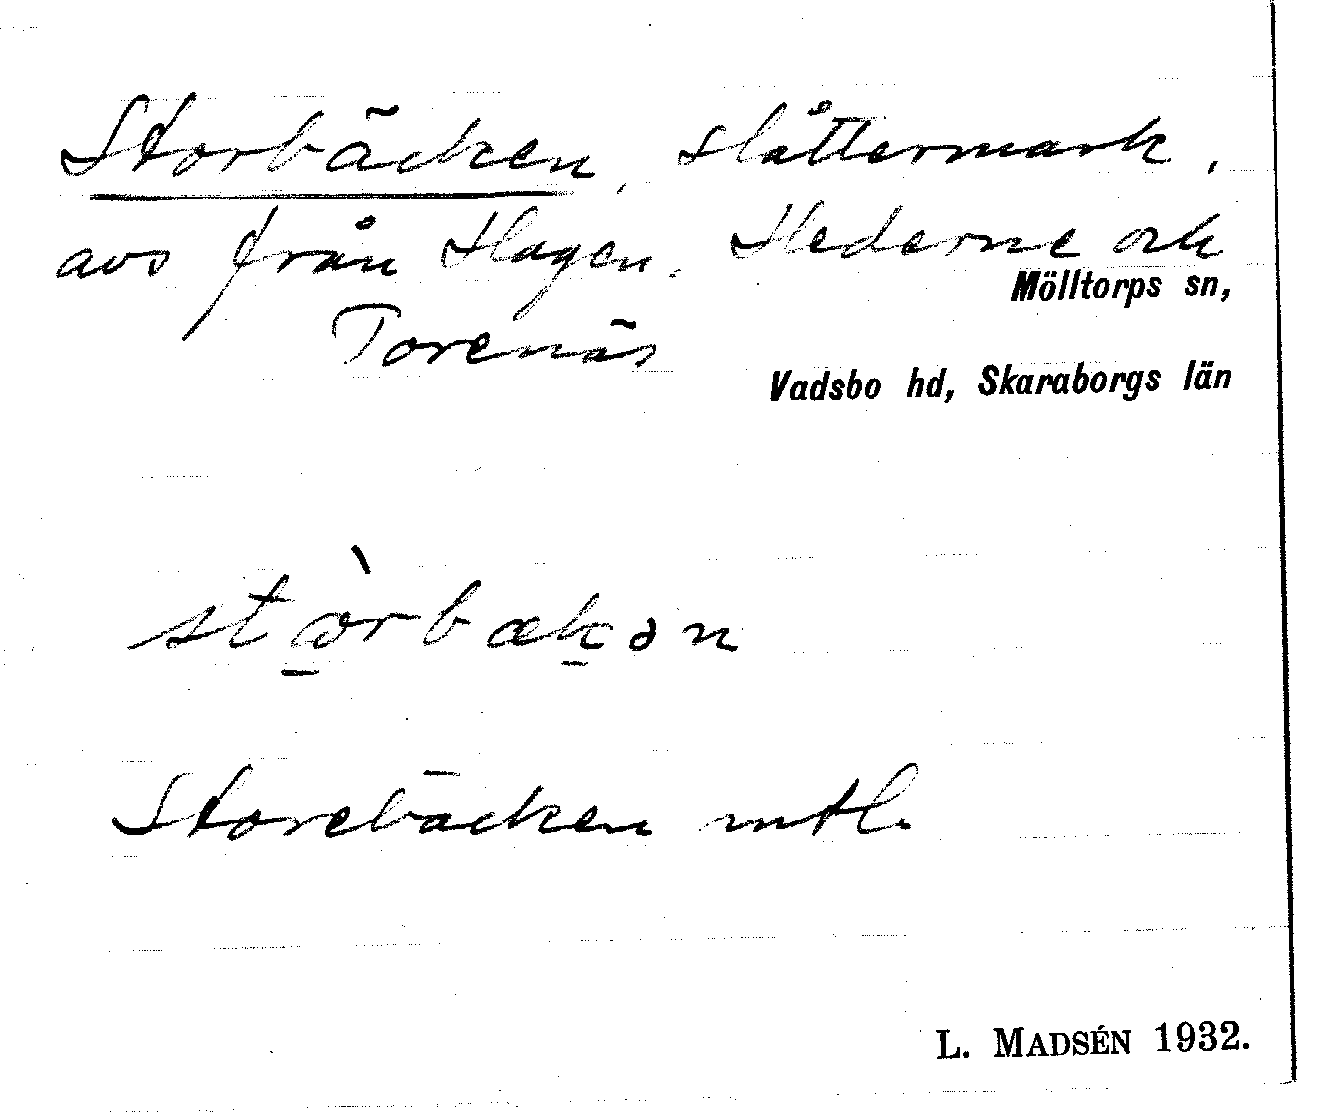 Storbäcken, slåttermark,
avs från Hagen, Hederne och
Mölltorps sn,
Torenäs
Vadsbo hd, Skaraborgs län
Storebäcken mtl.
L. MADSÉN 1932.